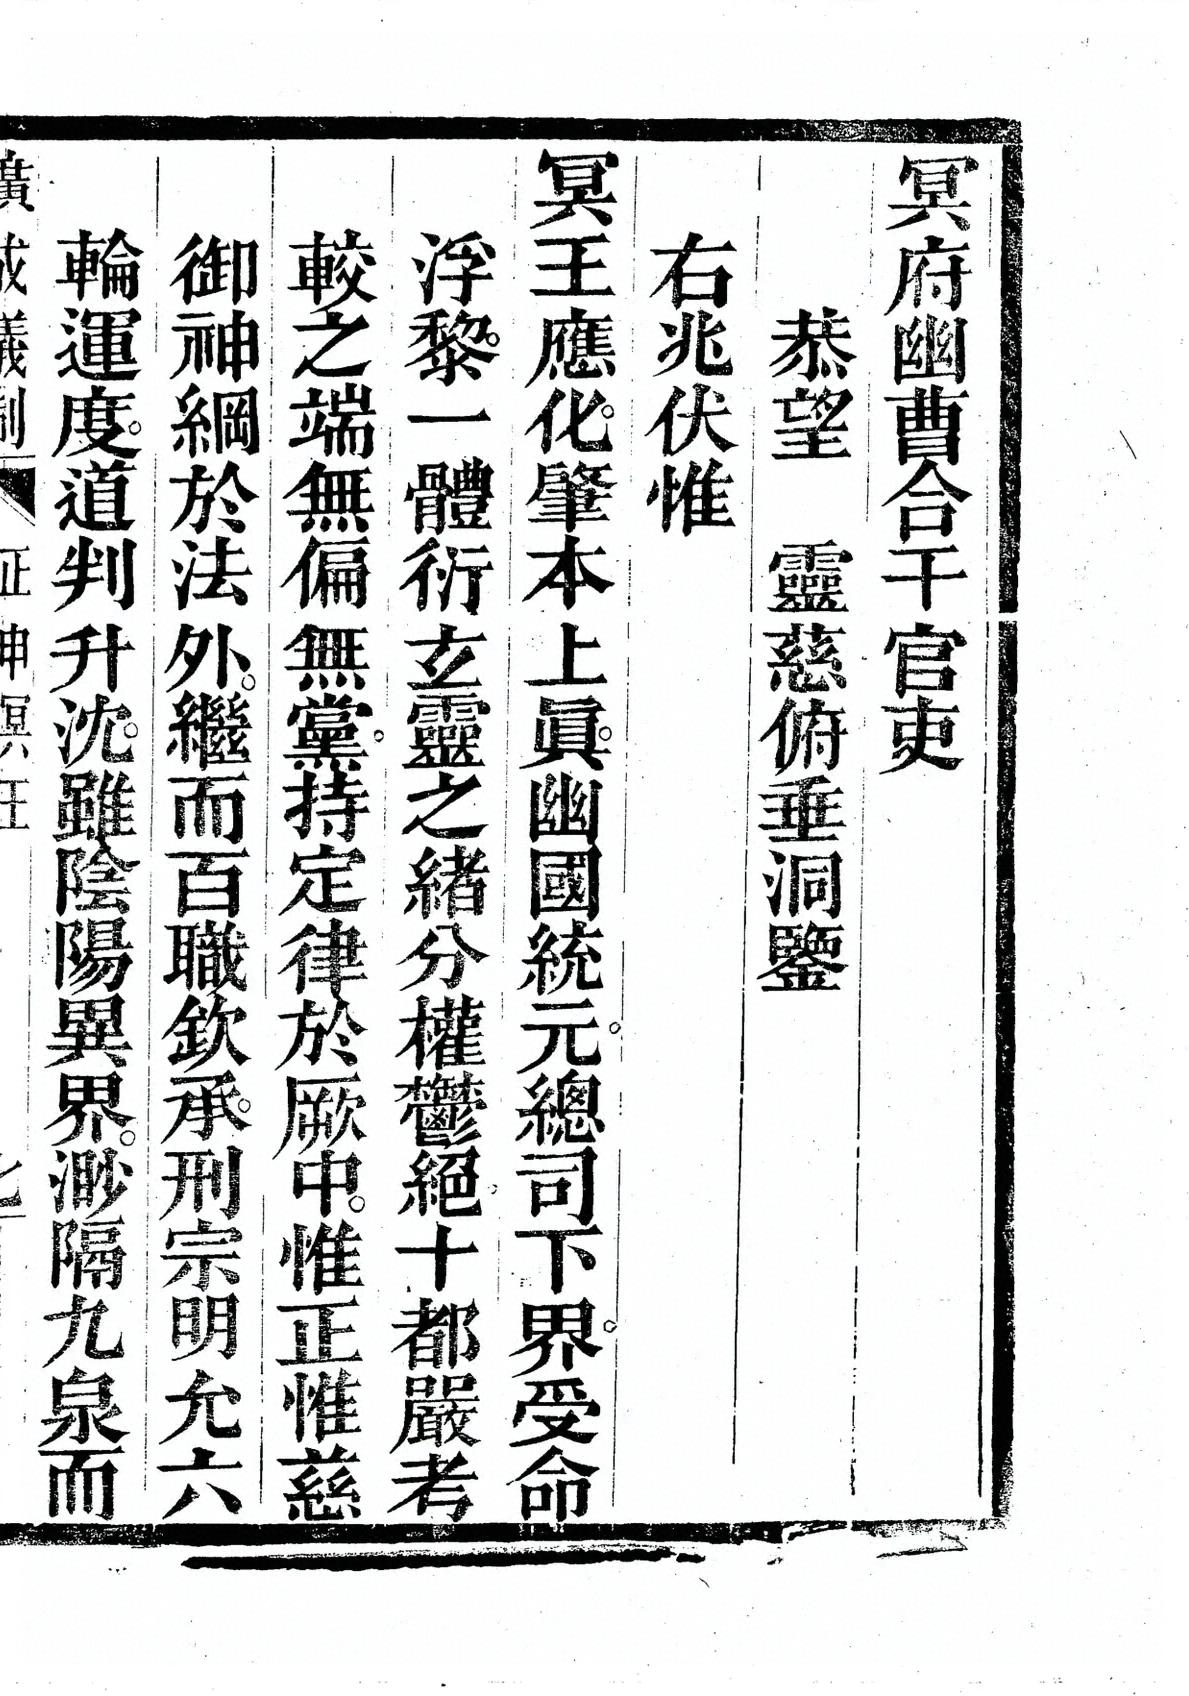 冥府幽曹合干官吏
恭望　靈慈俯垂洞鑒
右兆伏惟
冥王應化。肇本上眞。幽國統元。總司下界。受命
浮黎。一體衍玄靈之緒分權鬱絕。十都嚴考
較之端無偏無黨。持定律於厥中。惟正惟慈
御神綱於法外。繼而百職欽承。刑宗明允六
輪運度。道判升沈。雖陰陽異界。渺隔九泉而
廣成儀制　正申冥王